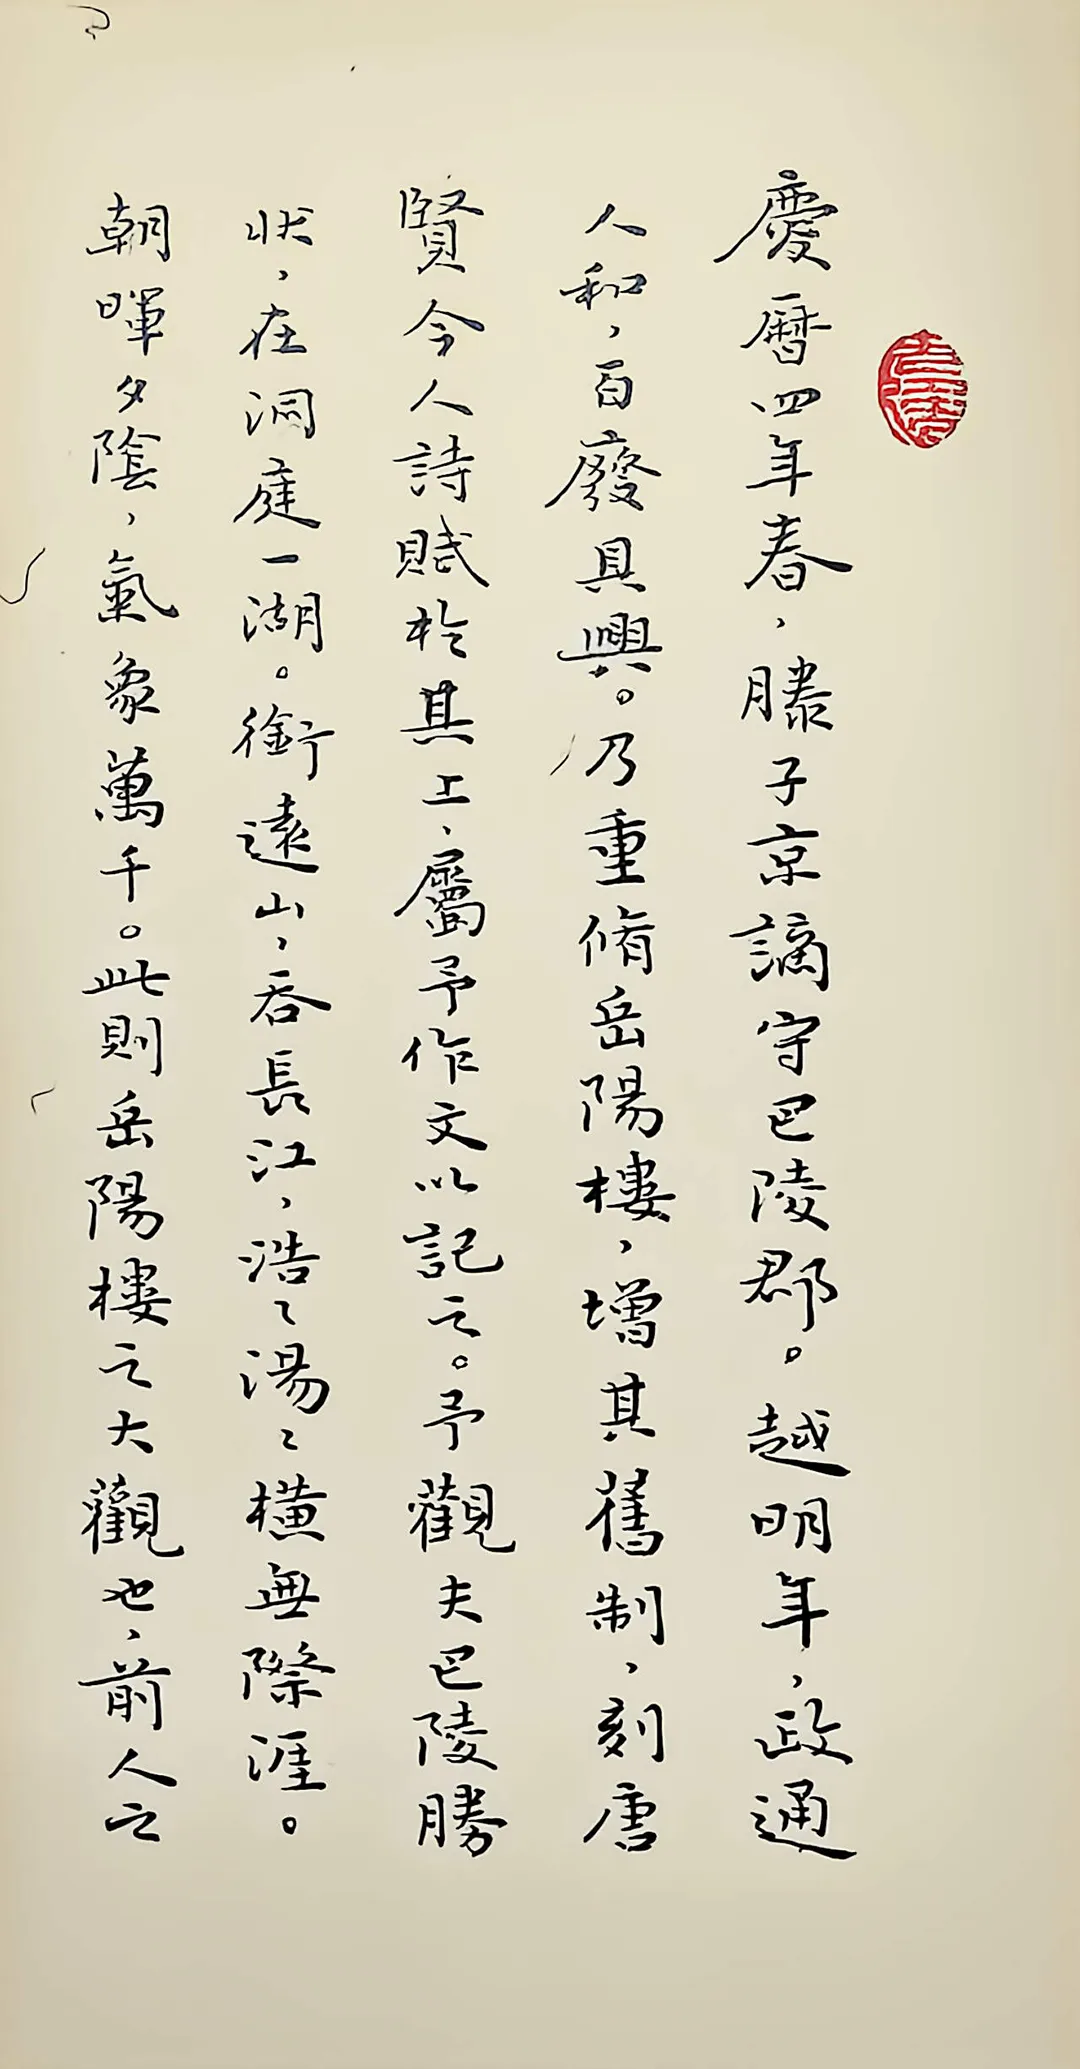 慶曆四年春，滕子京謫守巴陵郡。越明年，政通
人和，百廢具興。乃重脩岳陽樓，增其舊制，刻唐
賢今人詩賦於其上、屬予作文以記之。予觀夫巴陵勝
狀，在洞庭一湖。銜遠山，吞長江，浩〻湯〻橫無際涯。
朝暉夕陰，氣象萬千。此則岳陽樓之大觀也、前人之